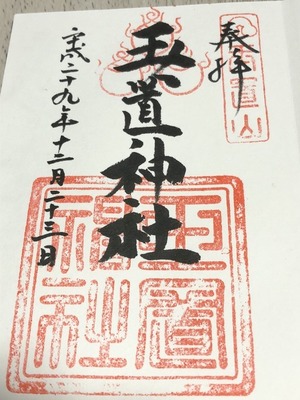 奉拝
玉置山
玉置神社
平成二十九年十二月二十三日
玉置神社